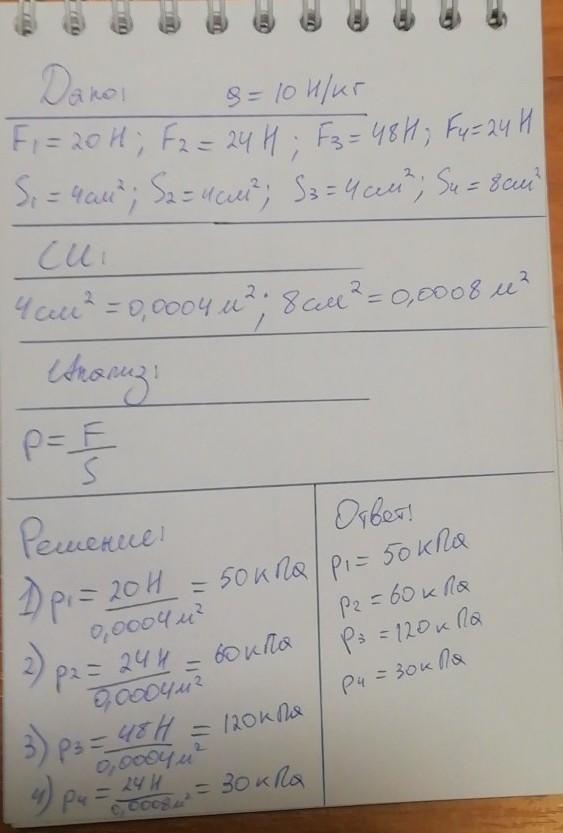 Дано: g = 10 Н/кг
F₁ = 20 Н; F₂ = 24 Н; F₃ = 48 Н; F₄ = 24 Н
S₁ = 4 см²; S₂ = 4 см²; S₃ = 4 см²; S₄ = 8 см²
СИ:
4 см² = 0,0004 м²; 8 см² = 0,0008 м²
Анализ:
p = F/S
Решение:
1) p₁ = 20 Н/0,0004 м² = 50 кПа
2) p₂ = 24 Н/0,0004 м² = 60 кПа
3) p₃ = 48 Н/0,0004 м² = 120 кПа
4) p₄ = 24 Н/0,0008 м² = 30 кПа
Ответ:
p₁ = 50 кПа
p₂ = 60 кПа
p₃ = 120 кПа
p₄ = 30 кПа